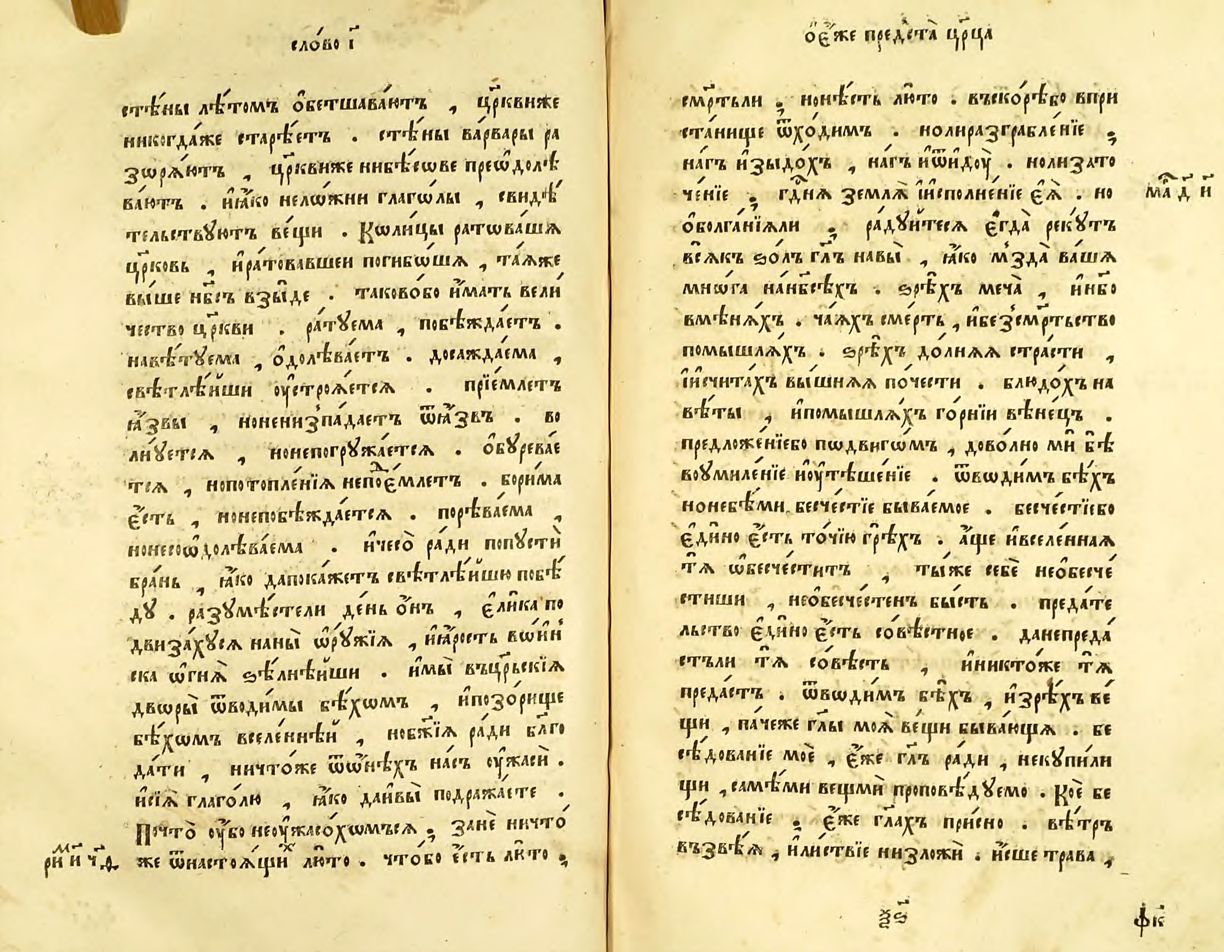 сло́во і҃
стѣ́ны лѣ́томъ ѡ҆бетшава́ютъ , цр҃квиже
никогда́же старѣ́етъ . стѣ́ны ва́рвары ра
зѡрѧ́ютъ , цр҃квиже нибѣ́сѡве преѡдолѣ
ва́ютъ . и҆ꙗ҆́ко нело́жни глаго́лы , свидѣ́
тельствꙋютъ ве́щи . Ко́лицы ратова́шѧ
цр҃ковь , и҆ратова́вшеи поги́бошѧ , та́ѧже
вы́ше нб҃съ взы́де . таково́бо и҆́мать вели́
чество цр҃кви . ра́тꙋема , побѣжда́етъ .
навѣ́тꙋема , ѡ҆долѣва́етъ . досажда́ема ,
свѣтлѣ́йши оу҆строѧ́етсѧ . прїе́млетъ
ꙗ҆́звы , нонеиз̾па́даетъ ѿꙗ҆́звъ . во
лнꙋ́етсѧ , нонепогрꙋжа́етсѧ . ѡ҆бꙋрева́е
тсѧ , нопотопле́нїѧ непод̾е́млетъ . бори́ма
є҆́сть , нонепобѣжда́етсѧ . порѣва́ема ,
нонесоѡдолѣва́ема . и҆чесо̀ ра́ди попꙋстѝ
бра́нь , ꙗ҆́ко дапока́жетъ свѣтлѣ́йшꙋю побѣ́
дꙋ . разꙋмѣ́стели де́нь ѻ҆́нъ , є҆ли́ка по
двиза́хꙋсѧ наны̀ ѡ҆рꙋ́жїѧ , и҆ꙗ҆́рость во́ин
ска ѻ҆гнѧ̀ ѕѣлнѣ́йши . и҆мы̀ въца́рьскїѧ
дворы̀ ѿводи́мы бѣ́хомъ , и҆позо́рище
бѣ́хомъ вселе́ннѣй , нобж҃їѧ ра́ди бл҃го
да́ти , ничто́же ѿѻ҆нѣ́хъ на́съ оу҆жасѝ .
и҆сїѧ̀ глаго́лю , ꙗ҆́ко даи҆вы̀ подража́ете .
Почто̀ оу҆́бо неоу҆жасо́хомъсѧ ; занѐ ничто́
же ѿнастоѧ́щих лю́то . что́бо є҆́сть лю́то ;
ѻ҆є҆́же предста̀ цр҃ца
сме́рть ли ; нонѣ́сть лю́то . въско́рѣбо впри
ста́нище ѿхо́димъ . нолиразграбле́нїе ;
на́гъ и҆зыдо́хъ , на́гъ и҆ѿидꙋ̀ . нолизато
че́нїе ; гд҃нѧ землѧ̀ и҆и҆сполне́нїе є҆ѧ̀ . но
ѻ҆болга́нїѧли ; ра́дꙋйтесѧ є҆гда̀ рекꙋ́тъ
всѧ́къ ѕо́лъ гл҃ъ навы̀ , ꙗ҆́ко мз̾да̀ ва́ша
мно́га нанб҃сѣ́хъ . ѕрѣ́хъ меча̀ , и҆нб҃о
вмѣнѧ́хъ . ча́ѧхъ сме́рть , и҆без̾сме́ртьство
помышлѧ́хъ . ѕрѣ́хъ до́лнѧѧ стра́сти ,
и҆и҆счита́хъ вы́шнѧѧ по́чести . блюдо́хъ на
вѣ́ты , и҆помышлѧ́хъ го́рнїи вѣне́цъ .
предложе́нїебо по́двигомъ , дово́лно мѝ бѣ
воумиле́нїе и҆оу҆тѣше́нїе . ѿводи́мъ бѣ́хъ
нонебѣ́ми бесче́стїе быва́емое . бесче́стїебо
є҆ди́но є҆́сть то́чїю грѣ́хъ . а҆́ще и҆вселе́ннаѧ
тѧ̀ ѡ҆бесче́ститъ , ты́же себѐ неѡбесче́
стиши , неѡбесче́стенъ бы́сть . преда́те
льство є҆ди́но є҆́сть со́вѣстное . данепреда́
стъли тѧ̀ со́вѣсть , и҆никто́же тѧ̀
преда́стъ . ѿводи́мъ бѣ́хъ , и҆зрѣ́хъ ве́
щи , па́чеже гл҃ы моѧ̀ ве́щи быва́ющѧ . бе
сѣ́дованїе моѐ , є҆́же гл҃ъ ра́ди , некꙋпи́ли
щи , самѣ́ми вещмѝ проповѣ́дꙋемо . Коѐ бе
сѣ́дованїе ; є҆́же гл҃ахъ при́сно . вѣ́тръ
възвѣ́ѧ , и҆ли́ствїе низложѝ . и҆́сше трава̀ ,
ѯѕ҃
фк҃